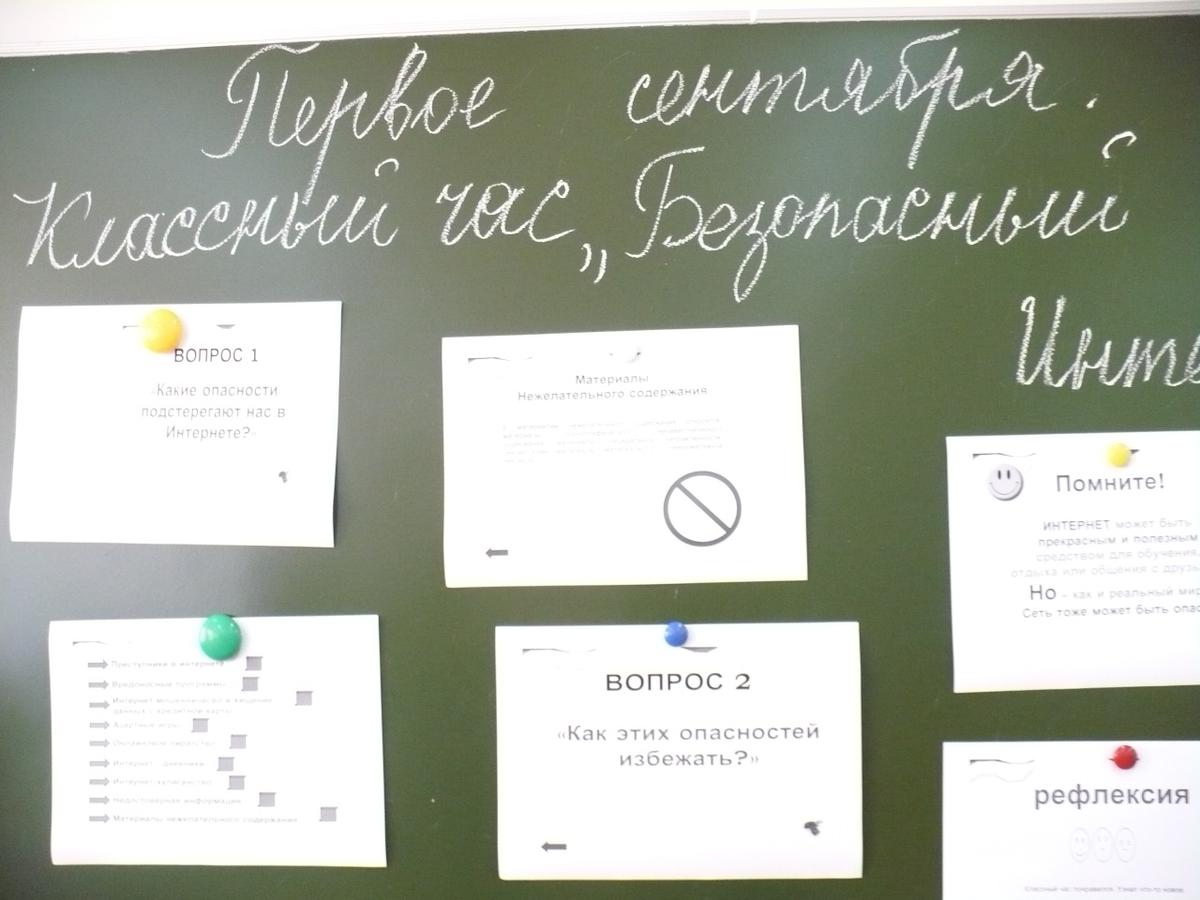 Первое сентября.
Классный час „Безопасный
Инте
ВОПРОС 1
«Какие опасности
подстерегают нас в
Интернете?»
Материалы
Нежелательного содержания
Помните!
ИНТЕРНЕТ может быть
прекрасным и полезным
средством для обучения,
отдыха или общения с друзь
Но – как и реальный мир
Сеть тоже может быть опас
Преступники в интернете
Вредоносные программы
Интернет-мошенничество и хищение
данных с кредитной карты
Азартные игры
Онлайновое пиратство
Интернет - дневники
Интернет-хулиганство
Недостоверная информация
Материалы нежелательного содержания
ВОПРОС 2
«Как этих опасностей
избежать?»
рефлексия
Классный час понравился. Узнал что-то новое.